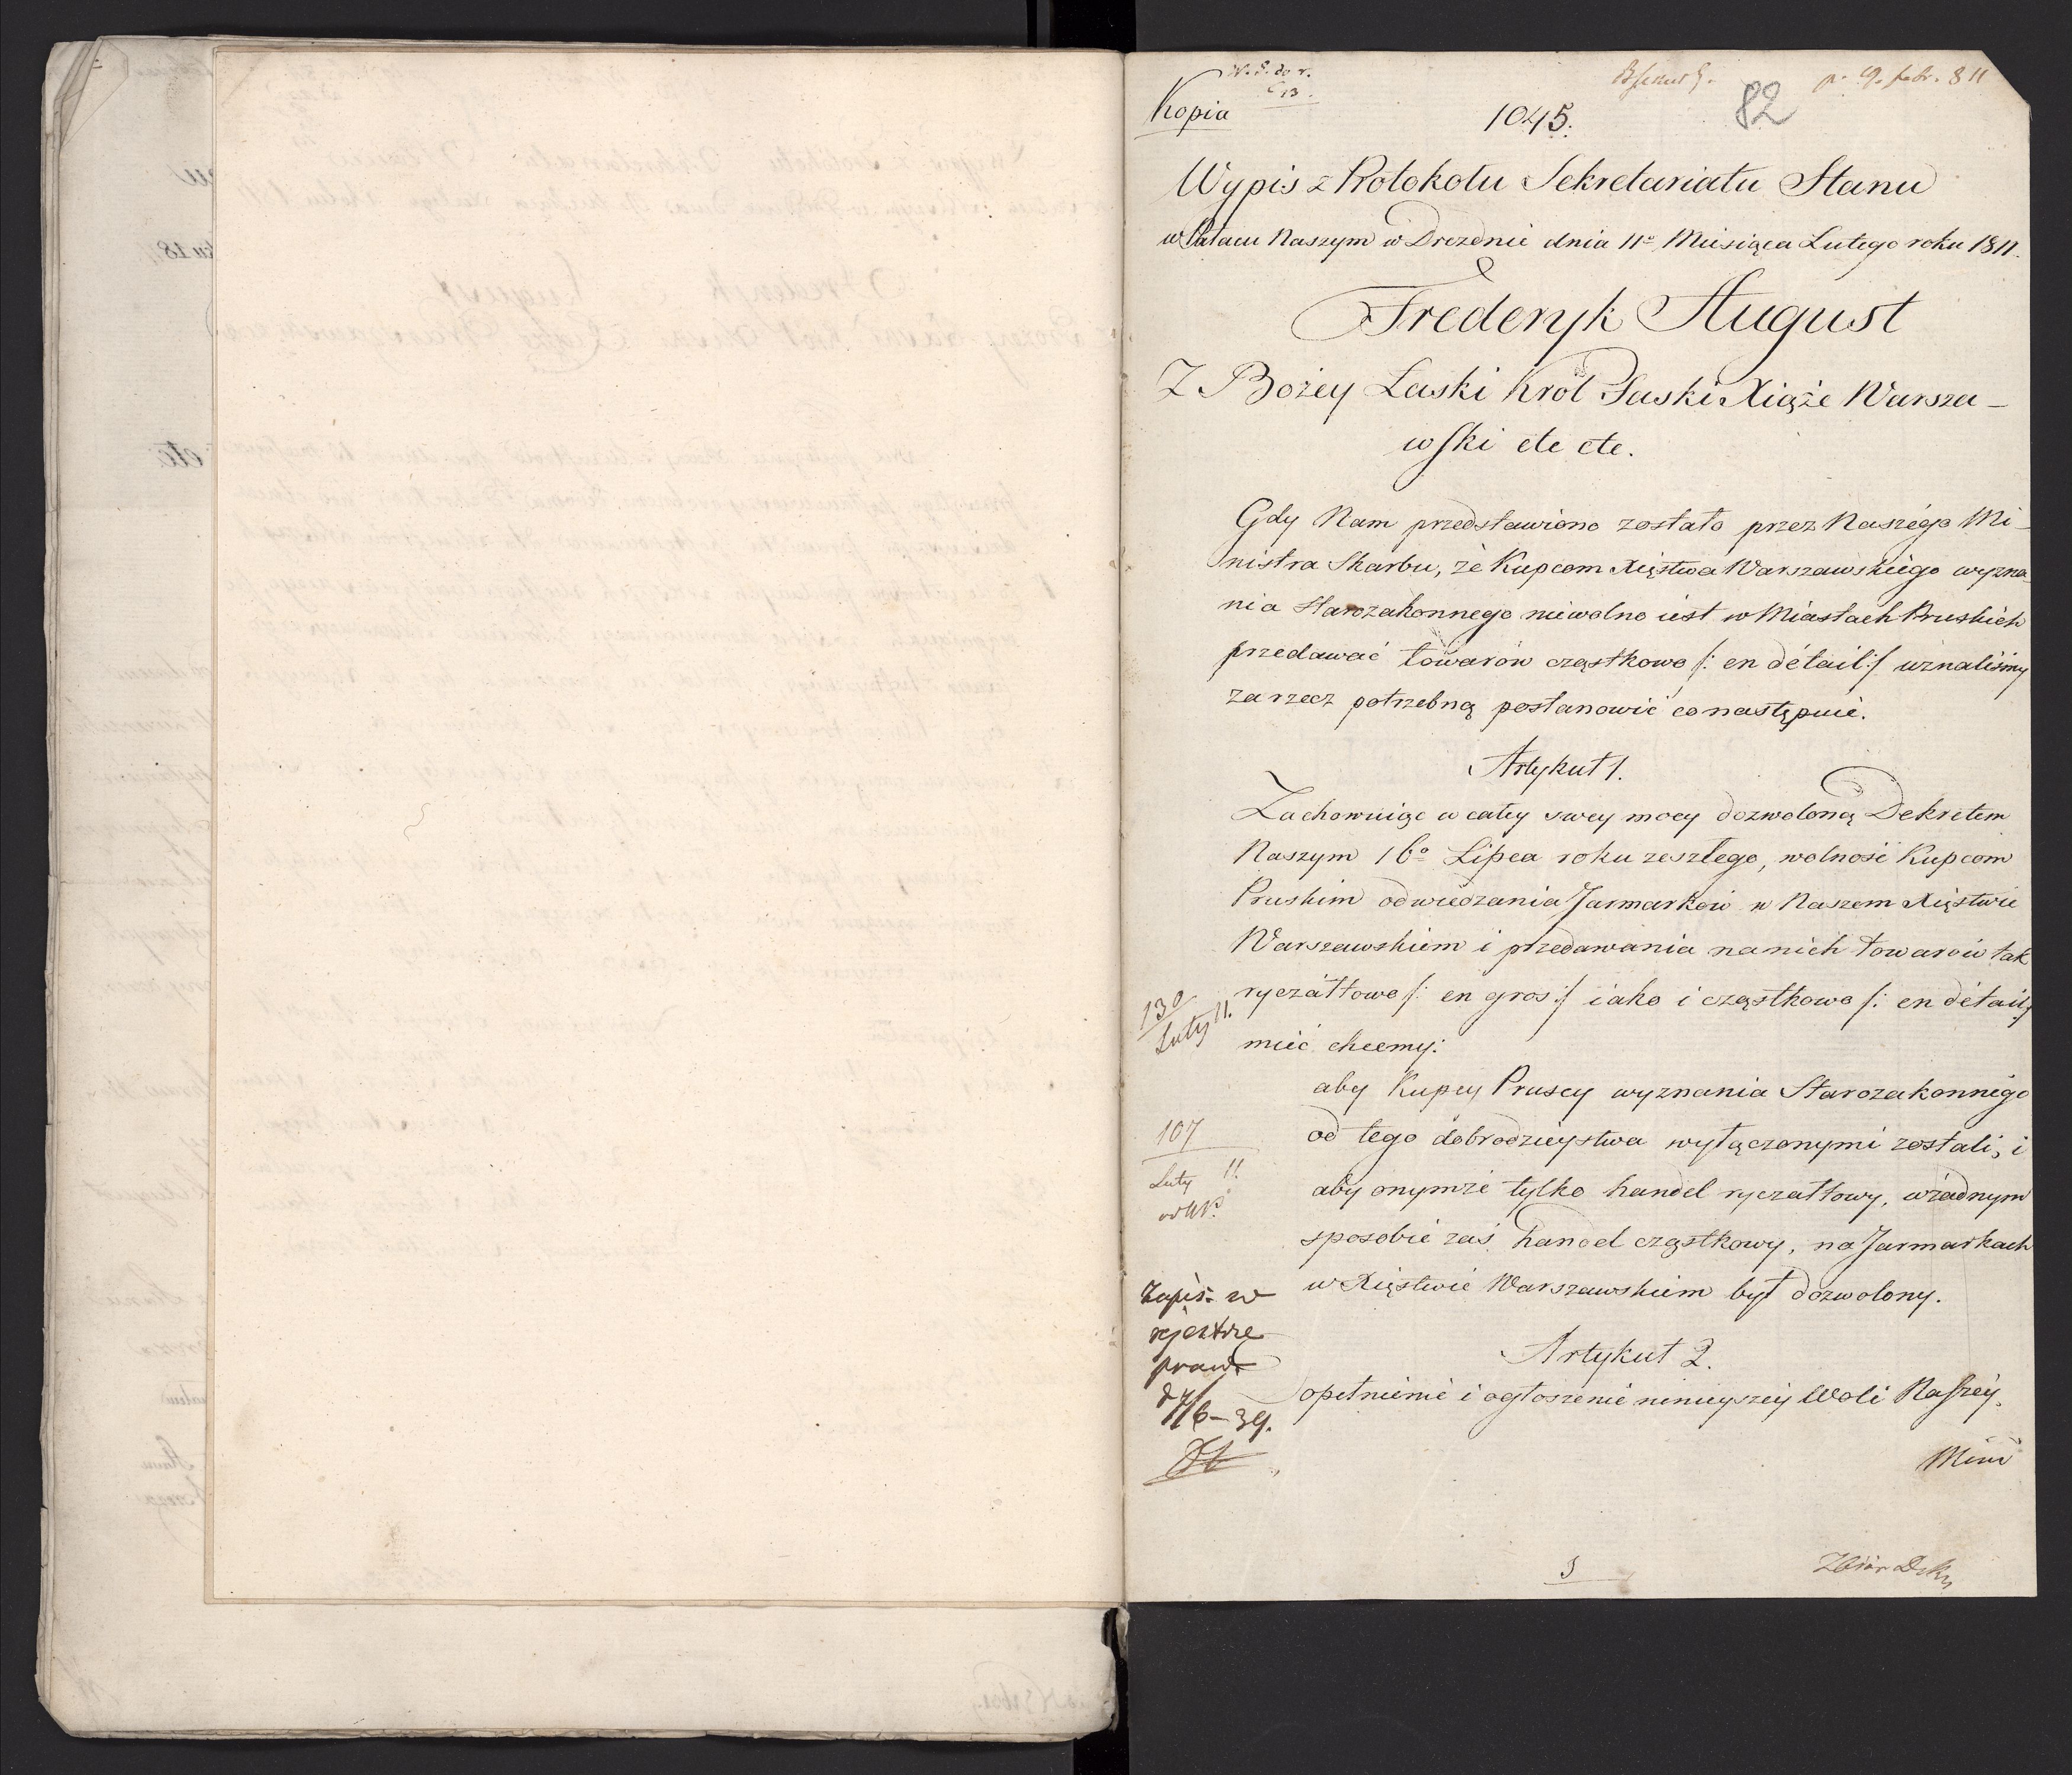 Kopia
1045.
82
p. 9. febr. 811
Wypis z Protokołu Sekretariatu Stanu
w Pałacu Naszym w Dreznie dnia 11º Miesiąca Lutego roku 1811.
Frederyk August
Z Bożey Łaski Król Saski Xiąże Warsza-
wski etc etc.
Gdy Nam przedstawiono zostało przez Naszego Mi-
nistra Skarbu, że Kupcom Xięstwa Warszawskiego wyzna-
nia Starozakonnego niewolno iest w Miastach Pruskich
przedawać towarów cząstkowo /: en détail :/ uznaliśmy
za rzecz potrzebną postanowić co następuie.
Artykuł 1.
Zachowuiąc w całey swey mocy dozwoloną Dekretem
Naszym 16º Lipca roku zeszłego, wolność Kupcom
Pruskim odwiedzania Jarmarków w Naszem Xięstwie
Warszawskiem i przedawania na nich towarów tak
ryczałtowo /: en gros :/ iako i cząstkowo /: en détail :/
mieć chcemy:
aby Kupcy Pruscy wyznania Starozakonnego
od tego dobrodzieystwa wyłączonymi zostali, i
aby onymże tylko handel ryczałtowy, w żadnym
sposobie zaś handel cząstkowy, na Jarmarkach
w Xięstwie Warszawskiem był dozwolony.
Artykuł 2.
Dopełnienie i ogłoszenie ninieyszey Woli Naszéy.
Mini
130
Luty 11.
107
Luty 11.
Zapis. w
rejestrze
praw.
d 7/6-39.
Zbiór Dekr